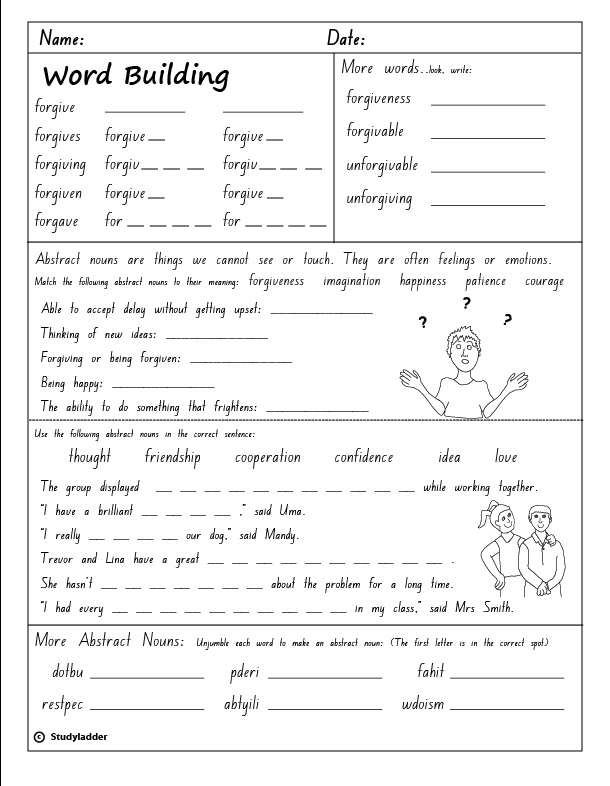 Name: Date:
Word Building
forgive ____________ ____________
forgives forgive __ forgive __
forgiving forgiv __ __ __ forgiv __ __ __
forgiven forgive __ forgive __
forgave for __ __ __ __ for __ __ __ __
More words..look, write:
forgiveness ________________
forgivable ________________
unforgivable ________________
unforgiving ________________
Abstract nouns are things we cannot see or touch. They are often feelings or emotions.
Match the following abstract nouns to their meaning: forgiveness imagination happiness patience courage
Able to accept delay without getting upset: ________________
Thinking of new ideas: ________________
Forgiving or being forgiven: ________________
Being happy: ________________
The ability to do something that frightens: ________________
? ? ?
Use the following abstract nouns in the correct sentence:
thought friendship cooperation confidence idea love
The group displayed __ __ __ __ __ __ __ __ __ __ __ while working together.
"I have a brilliant __ __ __ __ ," said Uma.
"I really __ __ __ __ our dog," said Mandy.
Trevor and Lina have a great __ __ __ __ __ __ __ __ __ __ .
She hasn't __ __ __ __ __ __ __ about the problem for a long time.
"I had every __ __ __ __ __ __ __ __ __ __ in my class," said Mrs Smith.
More Abstract Nouns: Unjumble each word to make an abstract noun: (The first letter is in the correct spot)
dotbu ________________ pderi ________________ fahit ________________
restpec ________________ abtyili ________________ wdoism ________________
© Studyladder